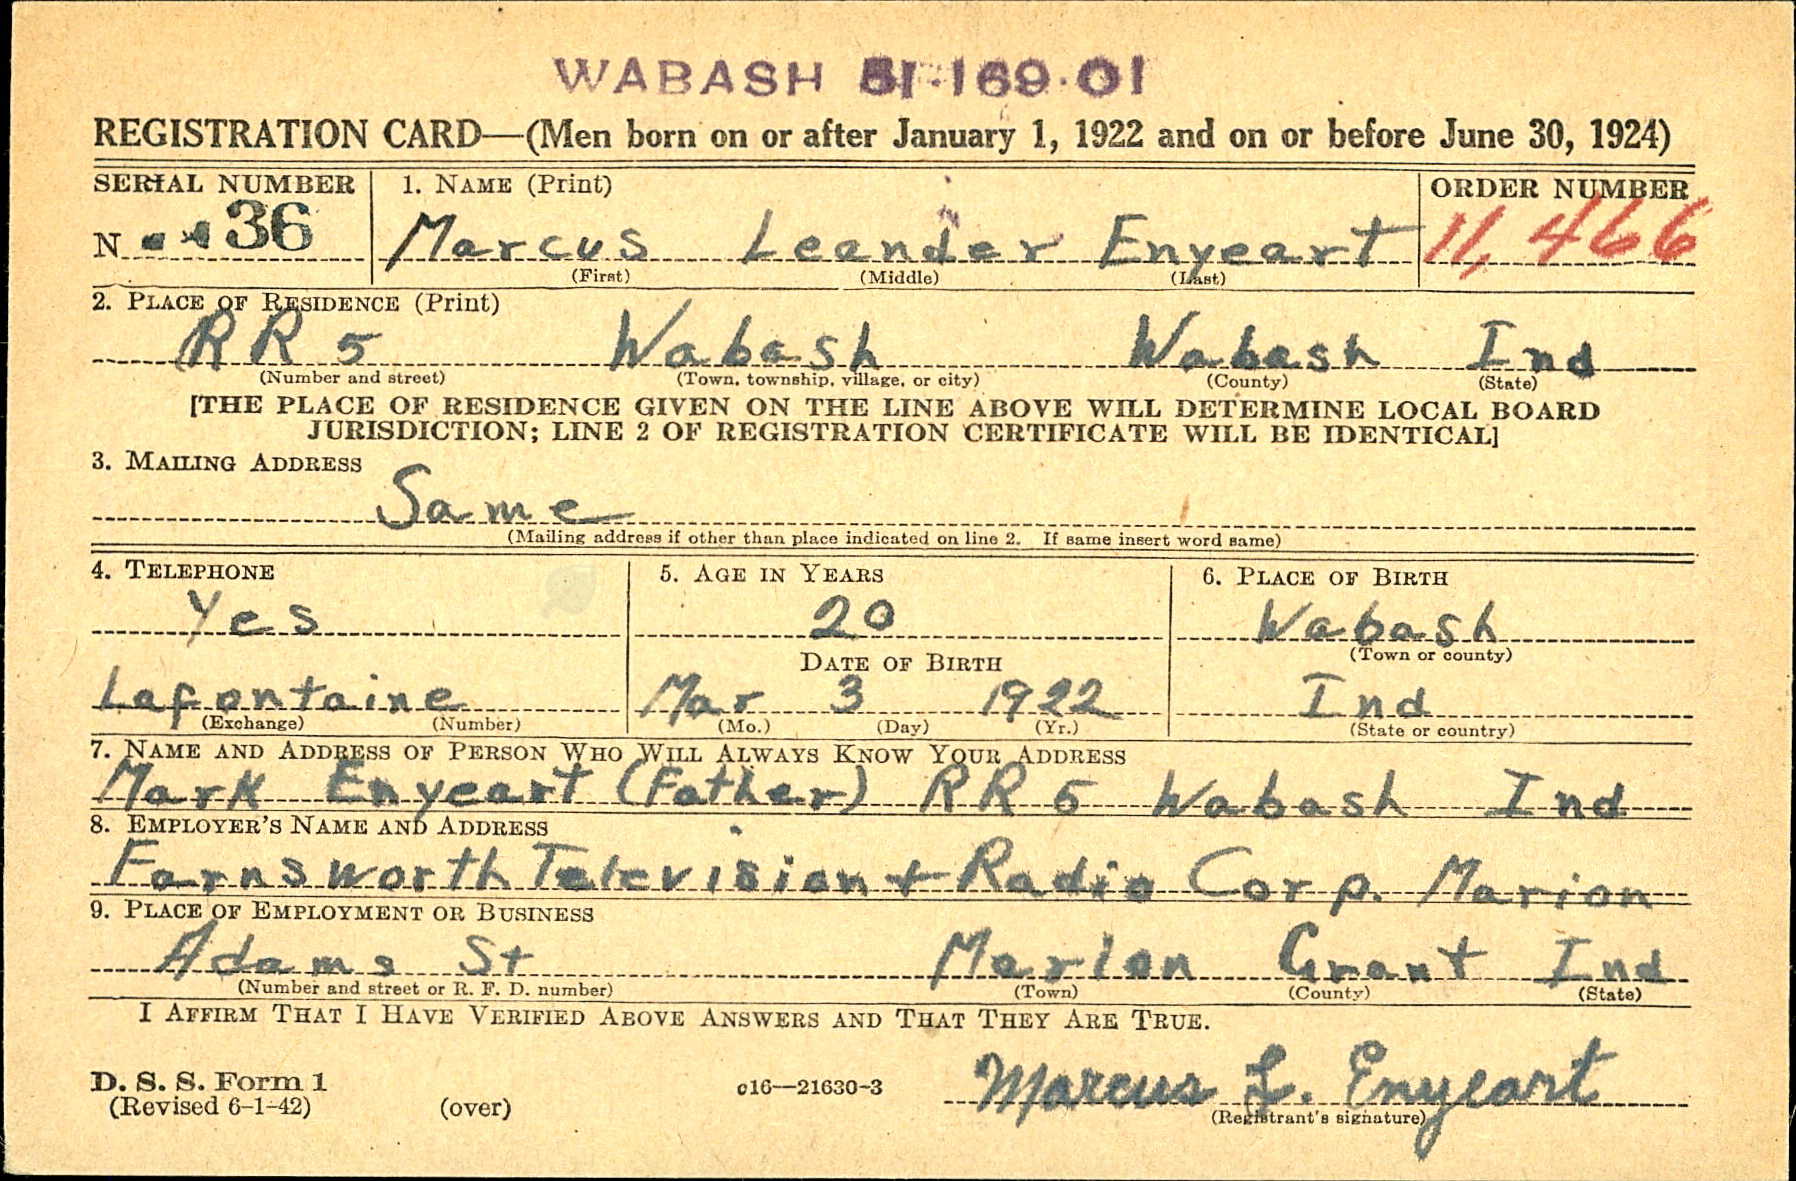 WABASH 51·169·01
REGISTRATION CARD—(Men born on or after January 1, 1922 and on or before June 30, 1924)
SERIAL NUMBER 1. NAME (Print) ORDER NUMBER
N 36 Marcus Leander Enyeart 11,466
(First) (Middle) (Last)
2. PLACE OF RESIDENCE (Print)
RR 5 Wabash Wabash Ind
(Number and street) (Town, township, village, or city) (County) (State)
[THE PLACE OF RESIDENCE GIVEN ON THE LINE ABOVE WILL DETERMINE LOCAL BOARD
JURISDICTION; LINE 2 OF REGISTRATION CERTIFICATE WILL BE IDENTICAL]
3. MAILING ADDRESS
Same
(Mailing address if other than place indicated on line 2. If same insert word same)
4. TELEPHONE 5. AGE IN YEARS 6. PLACE OF BIRTH
Yes 20 Wabash
(Town or county)
DATE OF BIRTH
Lafontaine Mar 3 1922 Ind
(Exchange) (Number) (Mo.) (Day) (Yr.) (State or country)
7. NAME AND ADDRESS OF PERSON WHO WILL ALWAYS KNOW YOUR ADDRESS
Mark Enyeart (Father) RR 5 Wabash Ind
8. EMPLOYER'S NAME AND ADDRESS
Farnsworth Television + Radio Corp. Marion
9. PLACE OF EMPLOYMENT OR BUSINESS
Adams St Marion Grant Ind
(Number and street or R. F. D. number) (Town) (County) (State)
I AFFIRM THAT I HAVE VERIFIED ABOVE ANSWERS AND THAT THEY ARE TRUE.
D. S. S. Form 1
(Revised 6-1-42) (over) c16—21630-3 Marcus L. Enyeart
(Registrant's signature)